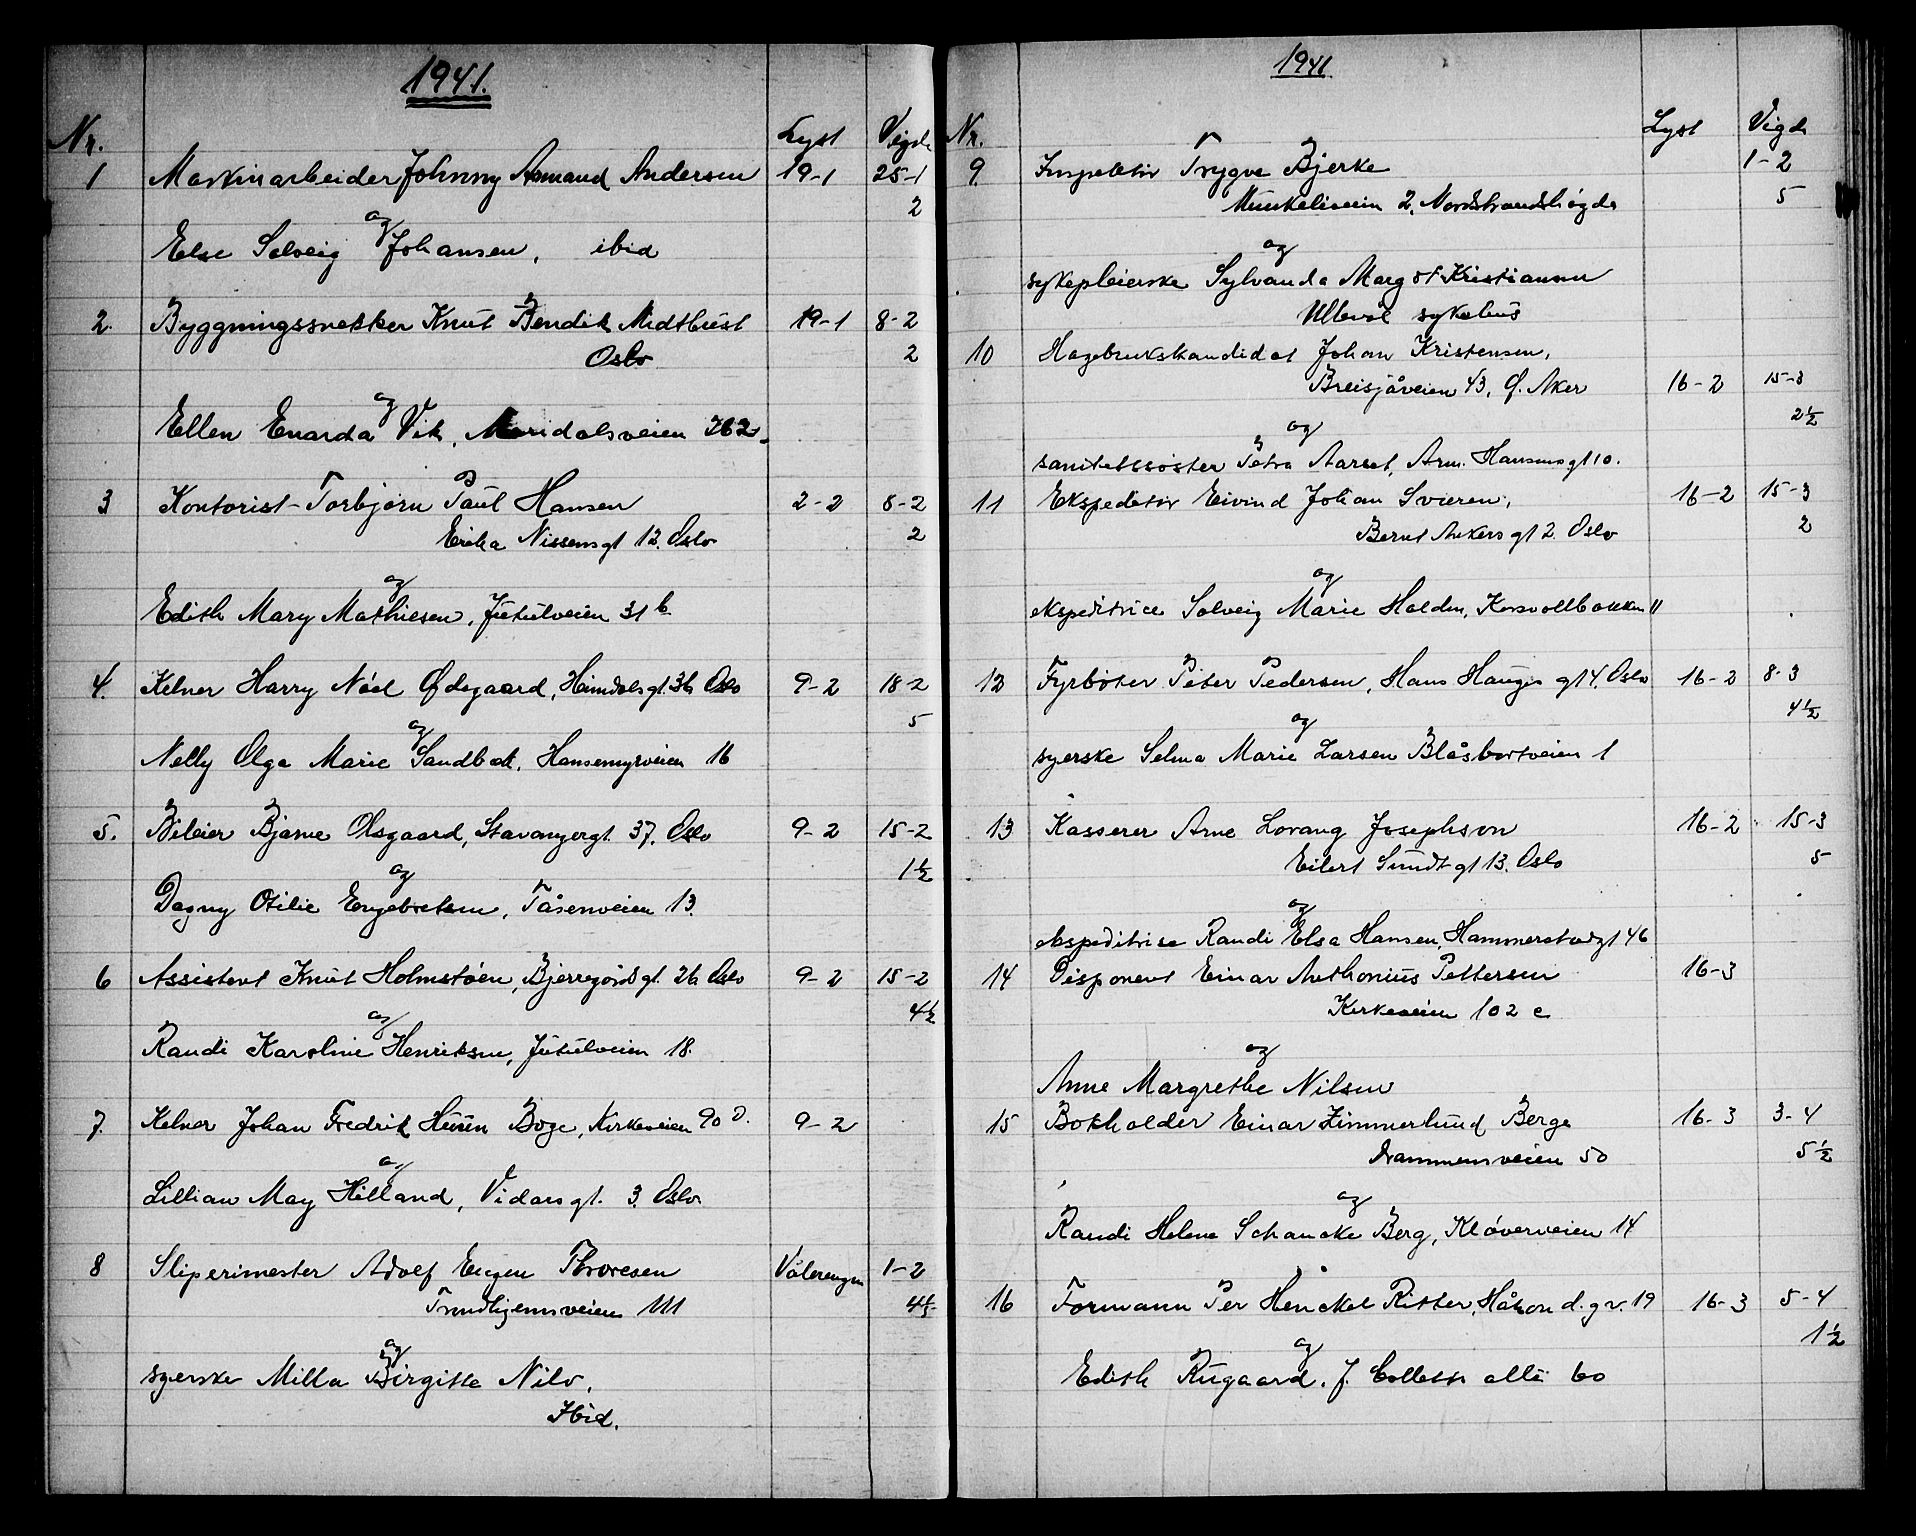 1941.
Nr. Lyst Vigde
1 Maskinarbeider Johnny Armand Andersen 19-1 25-1
2
og
Else Solveig Johansen, ibid
2. Byggningssnekker Knut Bendik Midtbust 19-1 8-2
Oslo 2
og
Ellen Enarda Vik, Maridalsveien 262.
3 Kontorist Torbjørn Paul Hansen 2-2 8-2
Ericha Nissensgt 12. Oslo 2
og
Edith Mary Mathiesen, Jutulveien 31 b
4. Kelner Harry Nóel Ødegaard, Heimdalsgt. 36 Oslo 9-2 18-2
5
og
Nelly Olga Marie Sandbæk, Hansemyrveien 16
5. Bileier Bjarne Olsgaard, Stavangergt. 37. Oslo 9-2 15-2
1½
og
Dagny Otilie Engebretsen, Tåsenveien 13.
6 Assistent Knut Holmstøen, Bjerregårdsgt. 26 Oslo 9-2 15-2
4½
og
Randi Karoline Henriksen, Jutulveien 18.
7. Kelner Johan Fredrik Boge, Kirkeveien 90 D. 9-2
og
Lillian May Hilland, Vidarsgt. 3. Oslo
8 Sliperimester Adolf Eugen Thoresen Vålerengen 1-2
Trondhjemsveien 111 4½
og
syerske Milla Birgitte Nilo,
Ibid.
1941
Nr. Lyst Vigde
9. Inspektør Trygve Bjerke 1-2
Munkeliveien 2, Nordstrandshøgda 5
og
sykepleierske Sylvanda Margot Kristiansen
Ullevål sykehus
10 Hagebrukskandidat Johan Kristensen,
Breisjåveien 43, Ø. Aker 16-2 15-3
2½
og
sanitetssøster Petra Aarset, Arm. Hansensgt 10.
11 Ekspeditør Eivind Johan Sveen, 16-2 15-3
Bernt Ankers gt 2. Oslo 2
og
ekspeditrice Solveig Marie Holden, Korsvollbakken 11
12 Fyrbøter Peter Pedersen, Hans Hauges gt 4. Oslo 16-2 8-3
4½
og
syerske Selma Marie Larsen Blåsbortveien 1
13 Kasserer Arne Lovang Josephson 16-2 15-3
Eilert Sundt gt 13. Oslo 5
og
ekspeditrise Randi Elsa Hansen, Hammerstadgt 46
14 Disponent Einar Anthonius Pettersen 16-3
Kirkeveien 102 c
og
Anne Margrethe Nilsen
15 Bokholder Einar Zimmerlund Berge 16-3 3-4
Drammensveien 50 5½
og
Randi Helene Schancke Berg, Kløverveien 14
16 Formann Per Henckel Ritter, Håkon d. g v. 19 16-3 5-4
1½
og
Edith Rugaard, J. Colletts alle 60